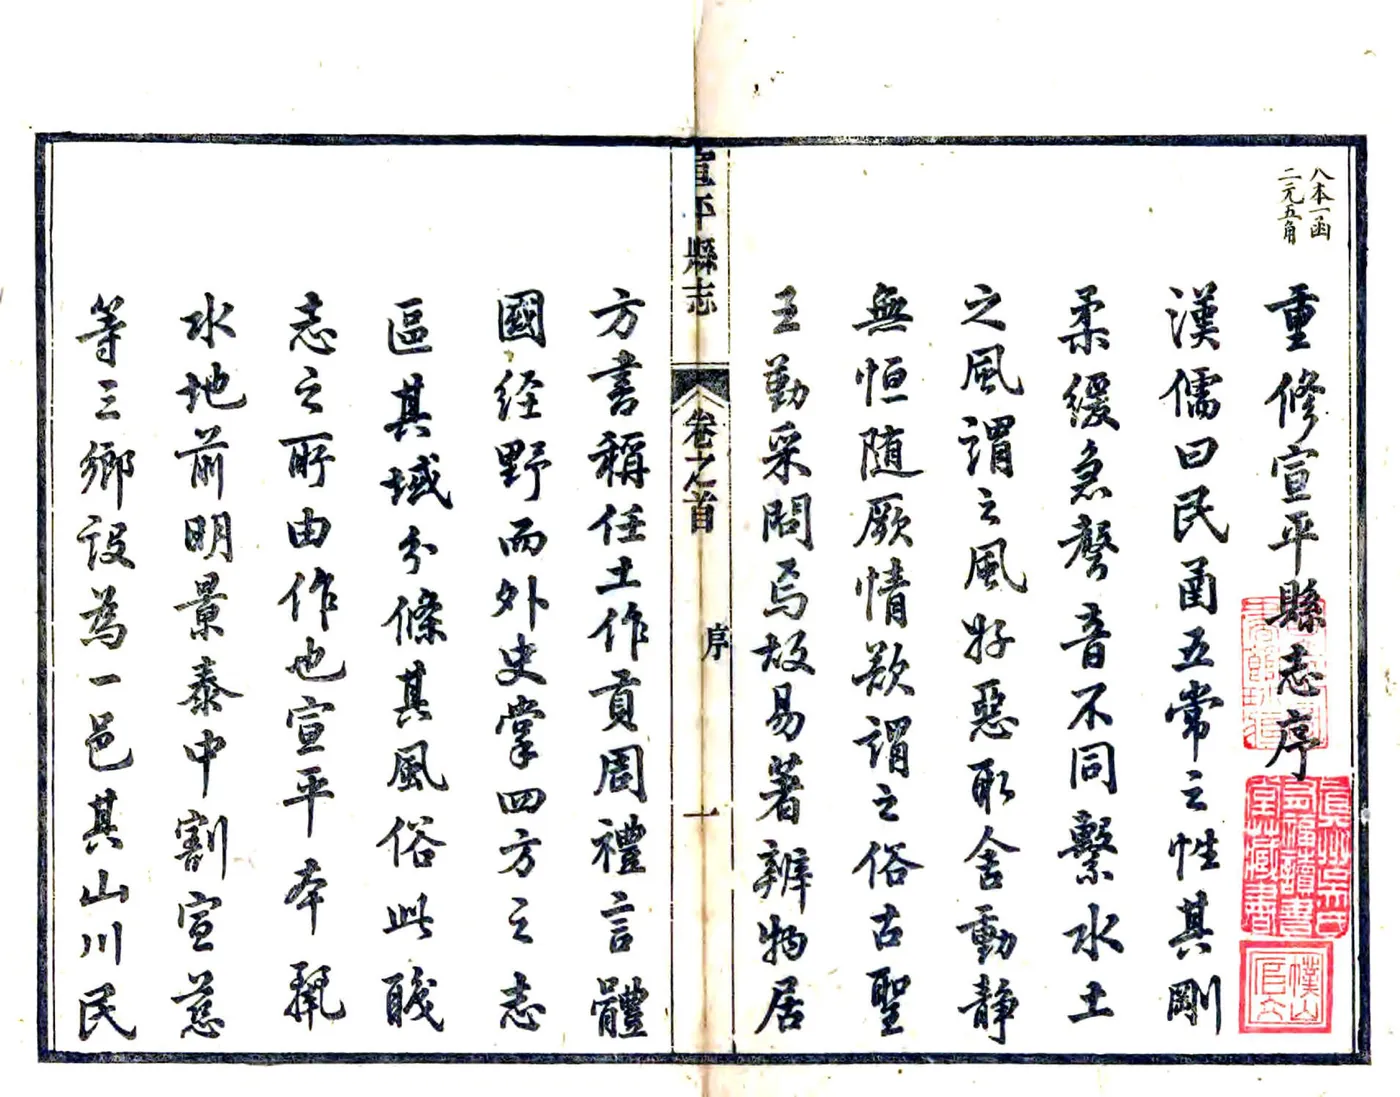 八本一函
二元五角
重修宣平縣志序
漢儒曰民函五常之性其剛
柔緩急聲音不同繫水土
之風謂之風好惡取舍動静
無恒随厥情欲謂之俗古聖
王勤采問焉故易著辨物居
真州吳氏
有福讀書
堂藏書
宣平縣志
卷之首
序
一
方書稱任土作貢周禮言體
國経野而外史掌四方之志
區其域分條其風俗此職
志之所由作也宣平本麗
水地前明景泰中割宣慈
等三鄉設為一邑其山川民